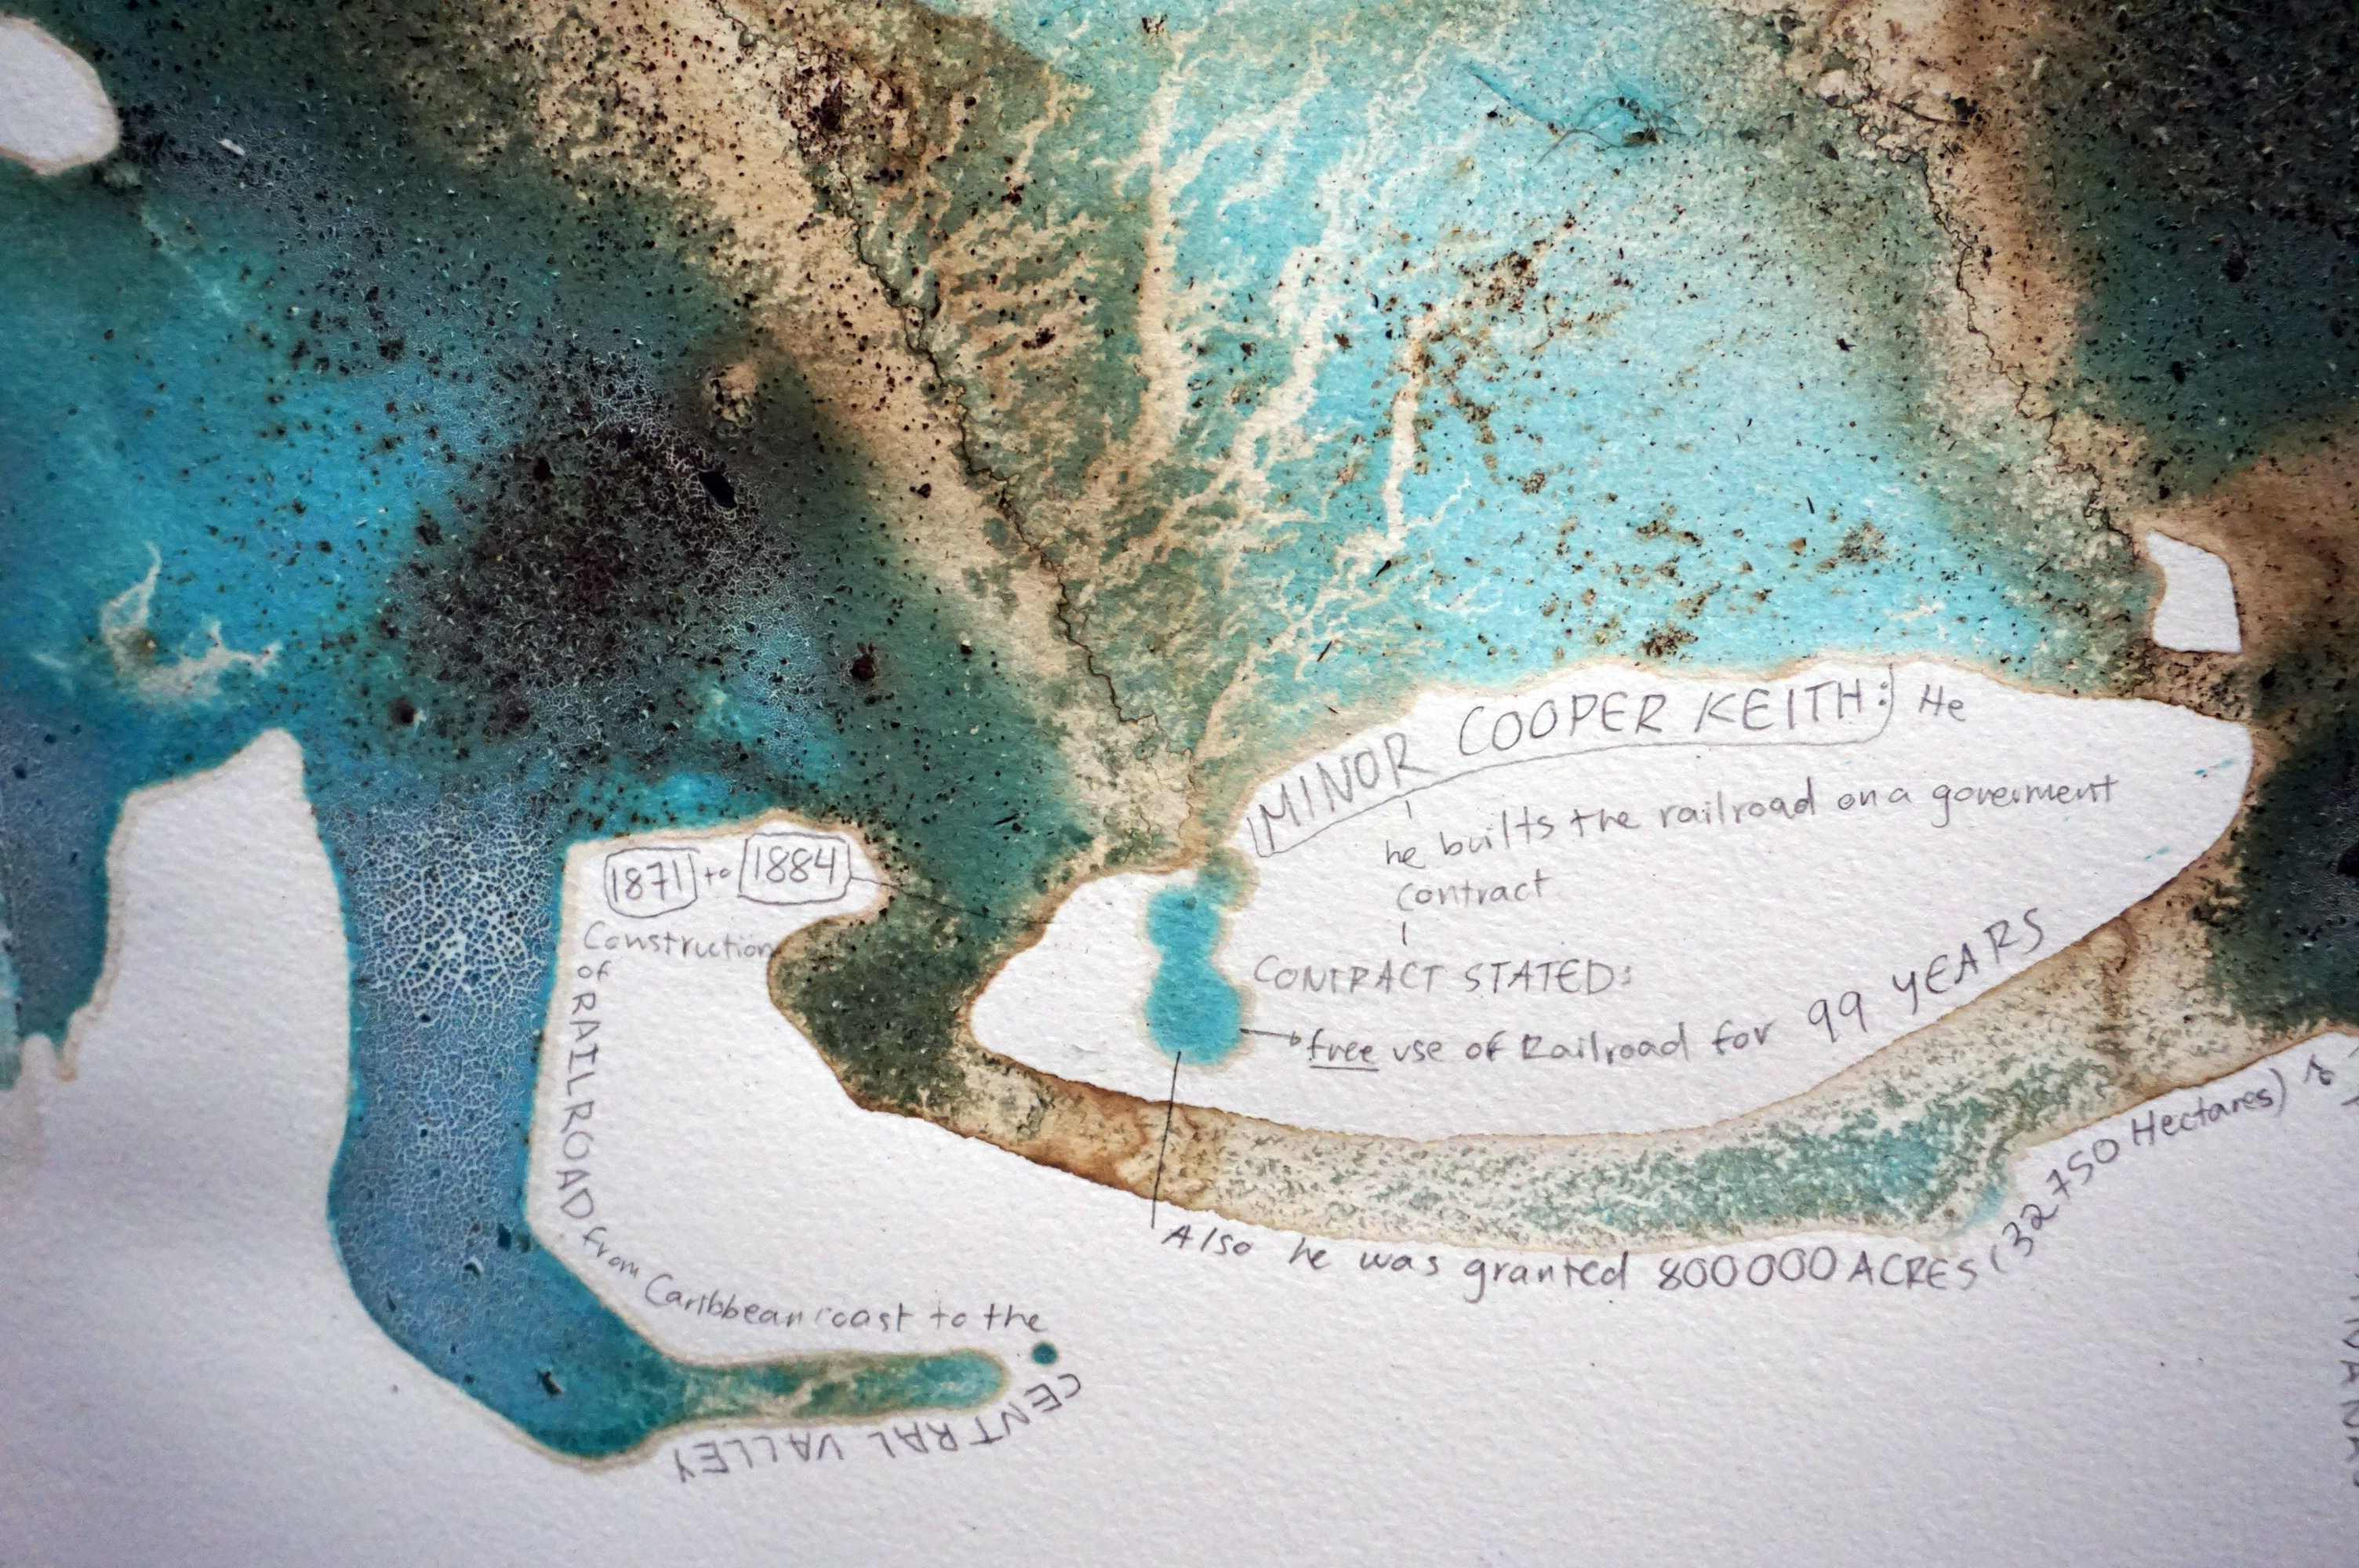 1871 to 1884
Construction
of RAILROAD from Caribbean coast to the
CENTRAL VALLEY
MINOR COOPER KEITH: He
he builts the railroad on a goverment
contract
CONTRACT STATED:
free use of Railroad for 99 YEARS
Also he was granted 800000 ACRES (32750 Hectares)